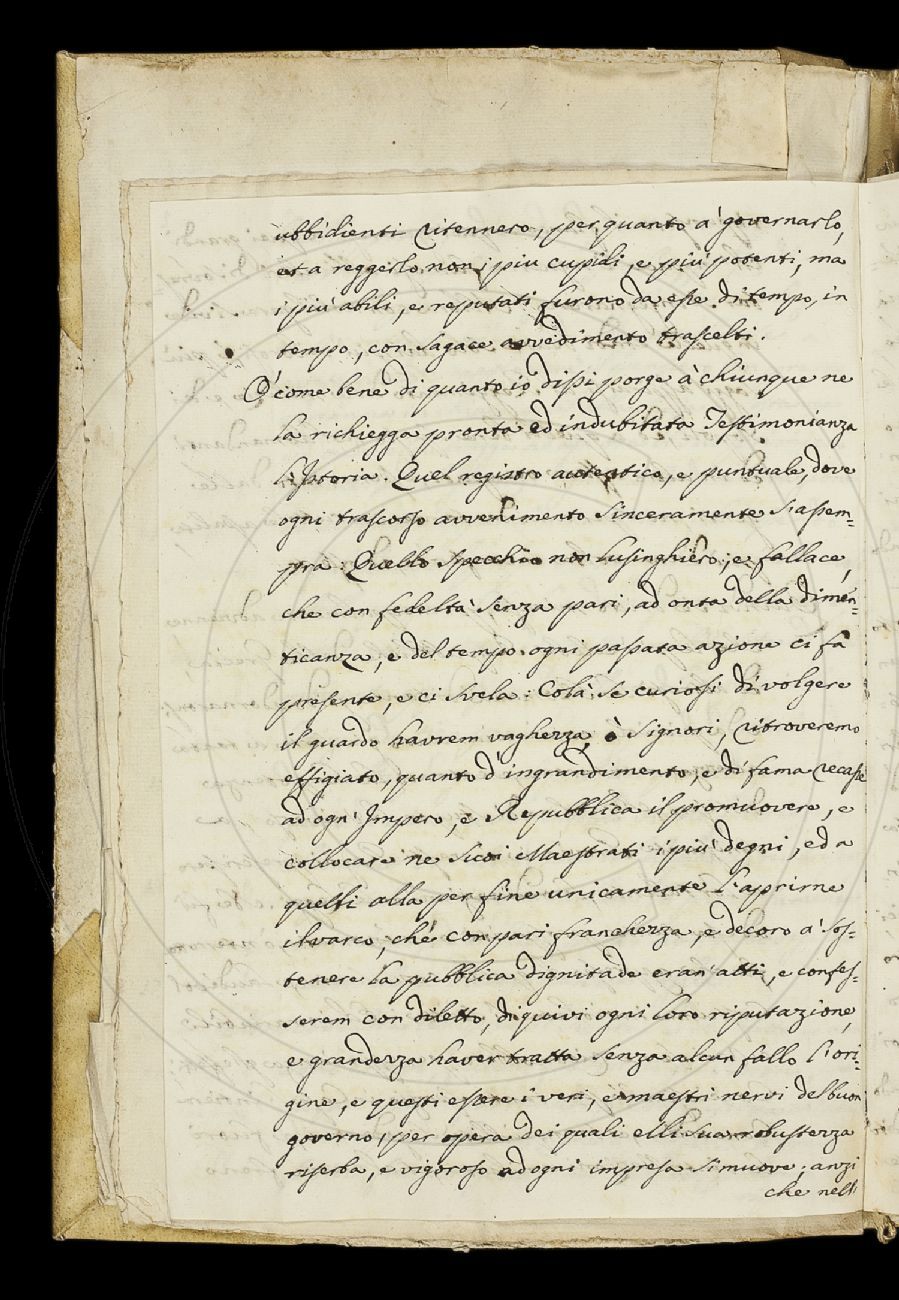 ubbidienti ritennero, per quanto à governarlo,
et a reggerlo non i piu cupidi, e più potenti, ma
i più abili, e reputati furono da esse di tempo, in
tempo, con sagace avvedimento trascelti.
O' come bene di quanto io dissi porge à chiunque ne
la richiegga pronta ed indubitata Testimonianza
l'Istoria. Quel registro autentico, e puntuale, dove
ogni trascorso avvenimento sinceramente s'assem=
pra: Quello specchio non lusinghiero, e fallace,
che con fedeltà senza pari, ad onta della dimen=
ticanza, e del tempo ogni passata azione ci fà
presente, e ci svela: Colà se curiosi di volgere
il guardo havrem vaghezza, ò Signori, ritroveremo
effigiato, quanto d'ingrandimento, e di fama recasse
ad ogn' Impero, e Repubblica il promuovere, e
collocare ne suoi Maestrati i più degni, ed a
quelli alla per fine unicamente l'aprirne
il varco, che con pari franchezza, e decoro à sos=
tenere la pubblica dignitade eran' atti, e confes=
serem con diletto, di quivi ogni loro riputazione,
e grandezza haver tratta senza alcun fallo l'ori=
gine, e questi essere i veri, e maestri nervi del buon
governo, per opera dei quali elli sua robustezza
riserba, e vigoroso ad ogni impresa si muove; anzi
che nell'